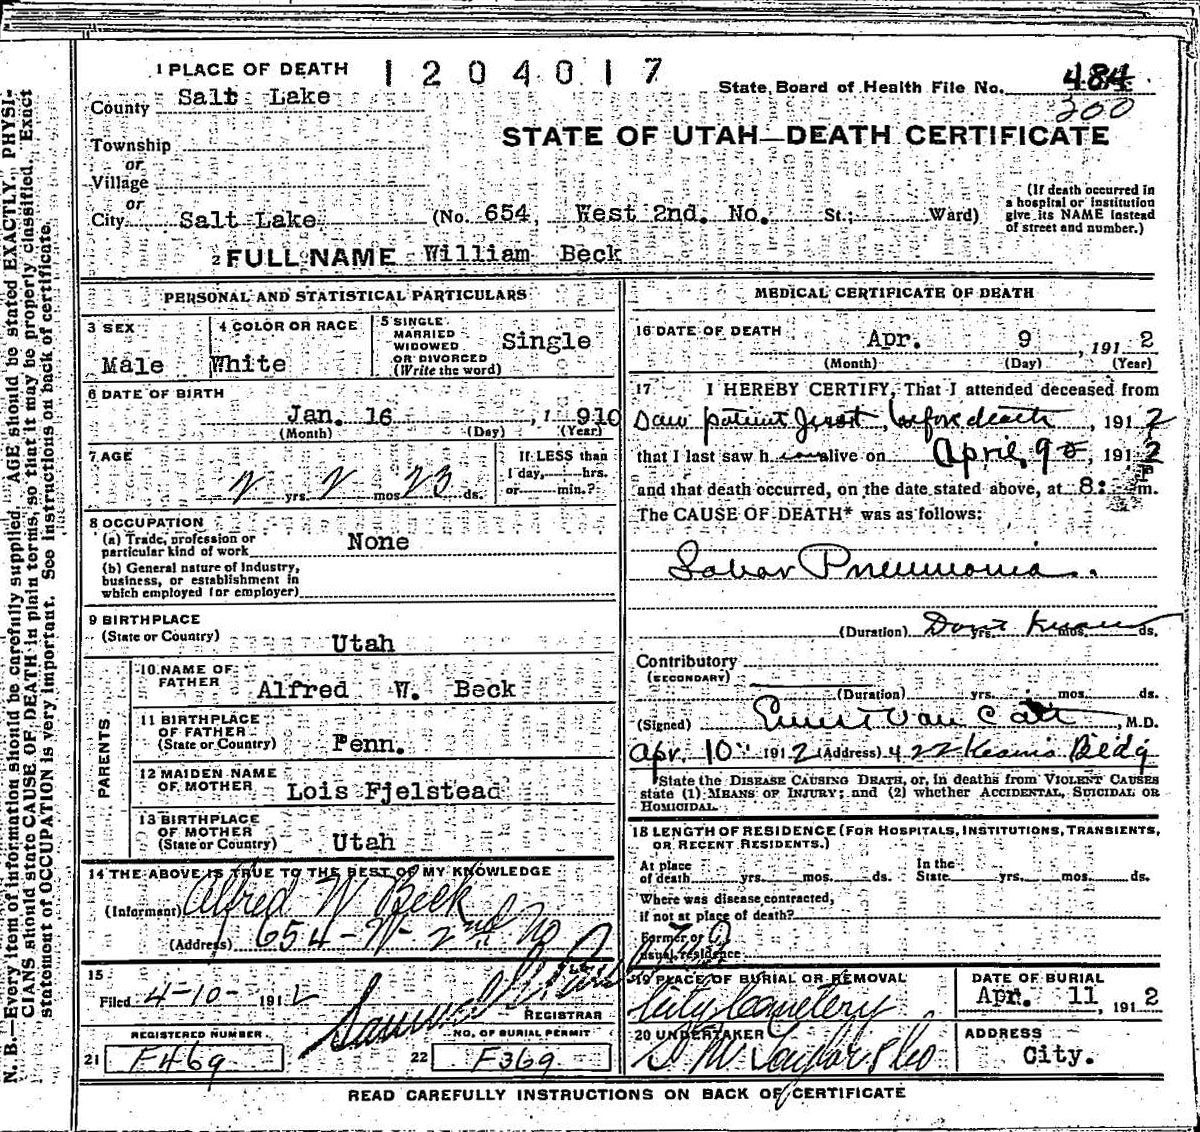 1 PLACE OF DEATH 1204017
State Board of Health File No. 484
200
County Salt Lake
STATE OF UTAH—DEATH CERTIFICATE
Township
or
Village
or
City Salt Lake (No. 654, West 2nd. No. St.; Ward)
(If death occurred in a hospital or institution give its NAME instead of street and number.)
2 FULL NAME William Beck
PERSONAL AND STATISTICAL PARTICULARS
3 SEX
Male
4 COLOR OR RACE
White
5 SINGLE
MARRIED
WIDOWED
OR DIVORCED
(Write the word)
Single
6 DATE OF BIRTH
Jan. 16 , 1 910
(Month) (Day) (Year)
7 AGE
2 yrs. 2 mos. 23 ds.
If LESS than
1 day, hrs.
or min.?
8 OCCUPATION
(a) Trade, profession or
particular kind of work None
(b) General nature of Industry,
business, or establishment in
which employed (or employer)
9 BIRTHPLACE
(State or Country) Utah
PARENTS
10 NAME OF
FATHER Alfred W. Beck
11 BIRTHPLACE
OF FATHER
(State or Country) Penn.
12 MAIDEN NAME
OF MOTHER Lois Fjelstead
13 BIRTHPLACE
OF MOTHER
(State or Country) Utah
14 THE ABOVE IS TRUE TO THE BEST OF MY KNOWLEDGE
(Informant) Alfred W Beck
(Address) 654 - W - 2nd No
15
Filed 4-10- 1912
REGISTRAR
REGISTERED NUMBER
21 F469
NO. OF BURIAL PERMIT
22 F369
MEDICAL CERTIFICATE OF DEATH
16 DATE OF DEATH
Apr. 9 , 191 2
(Month) (Day) (Year)
17 I HEREBY CERTIFY, That I attended deceased from
Saw patient Just before death , 191 2
that I last saw h im alive on April 9 , 191 2
and that death occurred, on the date stated above, at 8: P m.
The CAUSE OF DEATH* was as follows:
Lobar Pneumonia.
(Duration) Dont Know yrs. mos. ds.
Contributory
(SECONDARY)
(Duration) yrs. mos. ds.
(Signed) Van Cott , M.D.
Apr. 10 1912 (Address) 422 Kearns Bldg
*State the DISEASE CAUSING DEATH, or, in deaths from VIOLENT CAUSES
state (1) MEANS OF INJURY; and (2) whether ACCIDENTAL, SUICIDAL OR
HOMICIDAL.
18 LENGTH OF RESIDENCE (FOR HOSPITALS, INSTITUTIONS, TRANSIENTS,
OR RECENT RESIDENTS.)
At place
of death yrs. mos. ds.
In the
State yrs. mos. ds.
Where was disease contracted,
if not at place of death?
Former or
usual residence
19 PLACE OF BURIAL OR REMOVAL
City Cemetery
DATE OF BURIAL
Apr. 11 , 191 2
20 UNDERTAKER
S M Taylor & Co
ADDRESS
City.
READ CAREFULLY INSTRUCTIONS ON BACK OF CERTIFICATE
N. B.—Every item of information should be carefully supplied. AGE should be stated EXACTLY. PHYSI-
CIANS should state CAUSE OF DEATH in plain terms, so that it may be properly classified. Exact
statement of OCCUPATION is very important. See instructions on back of certificate.